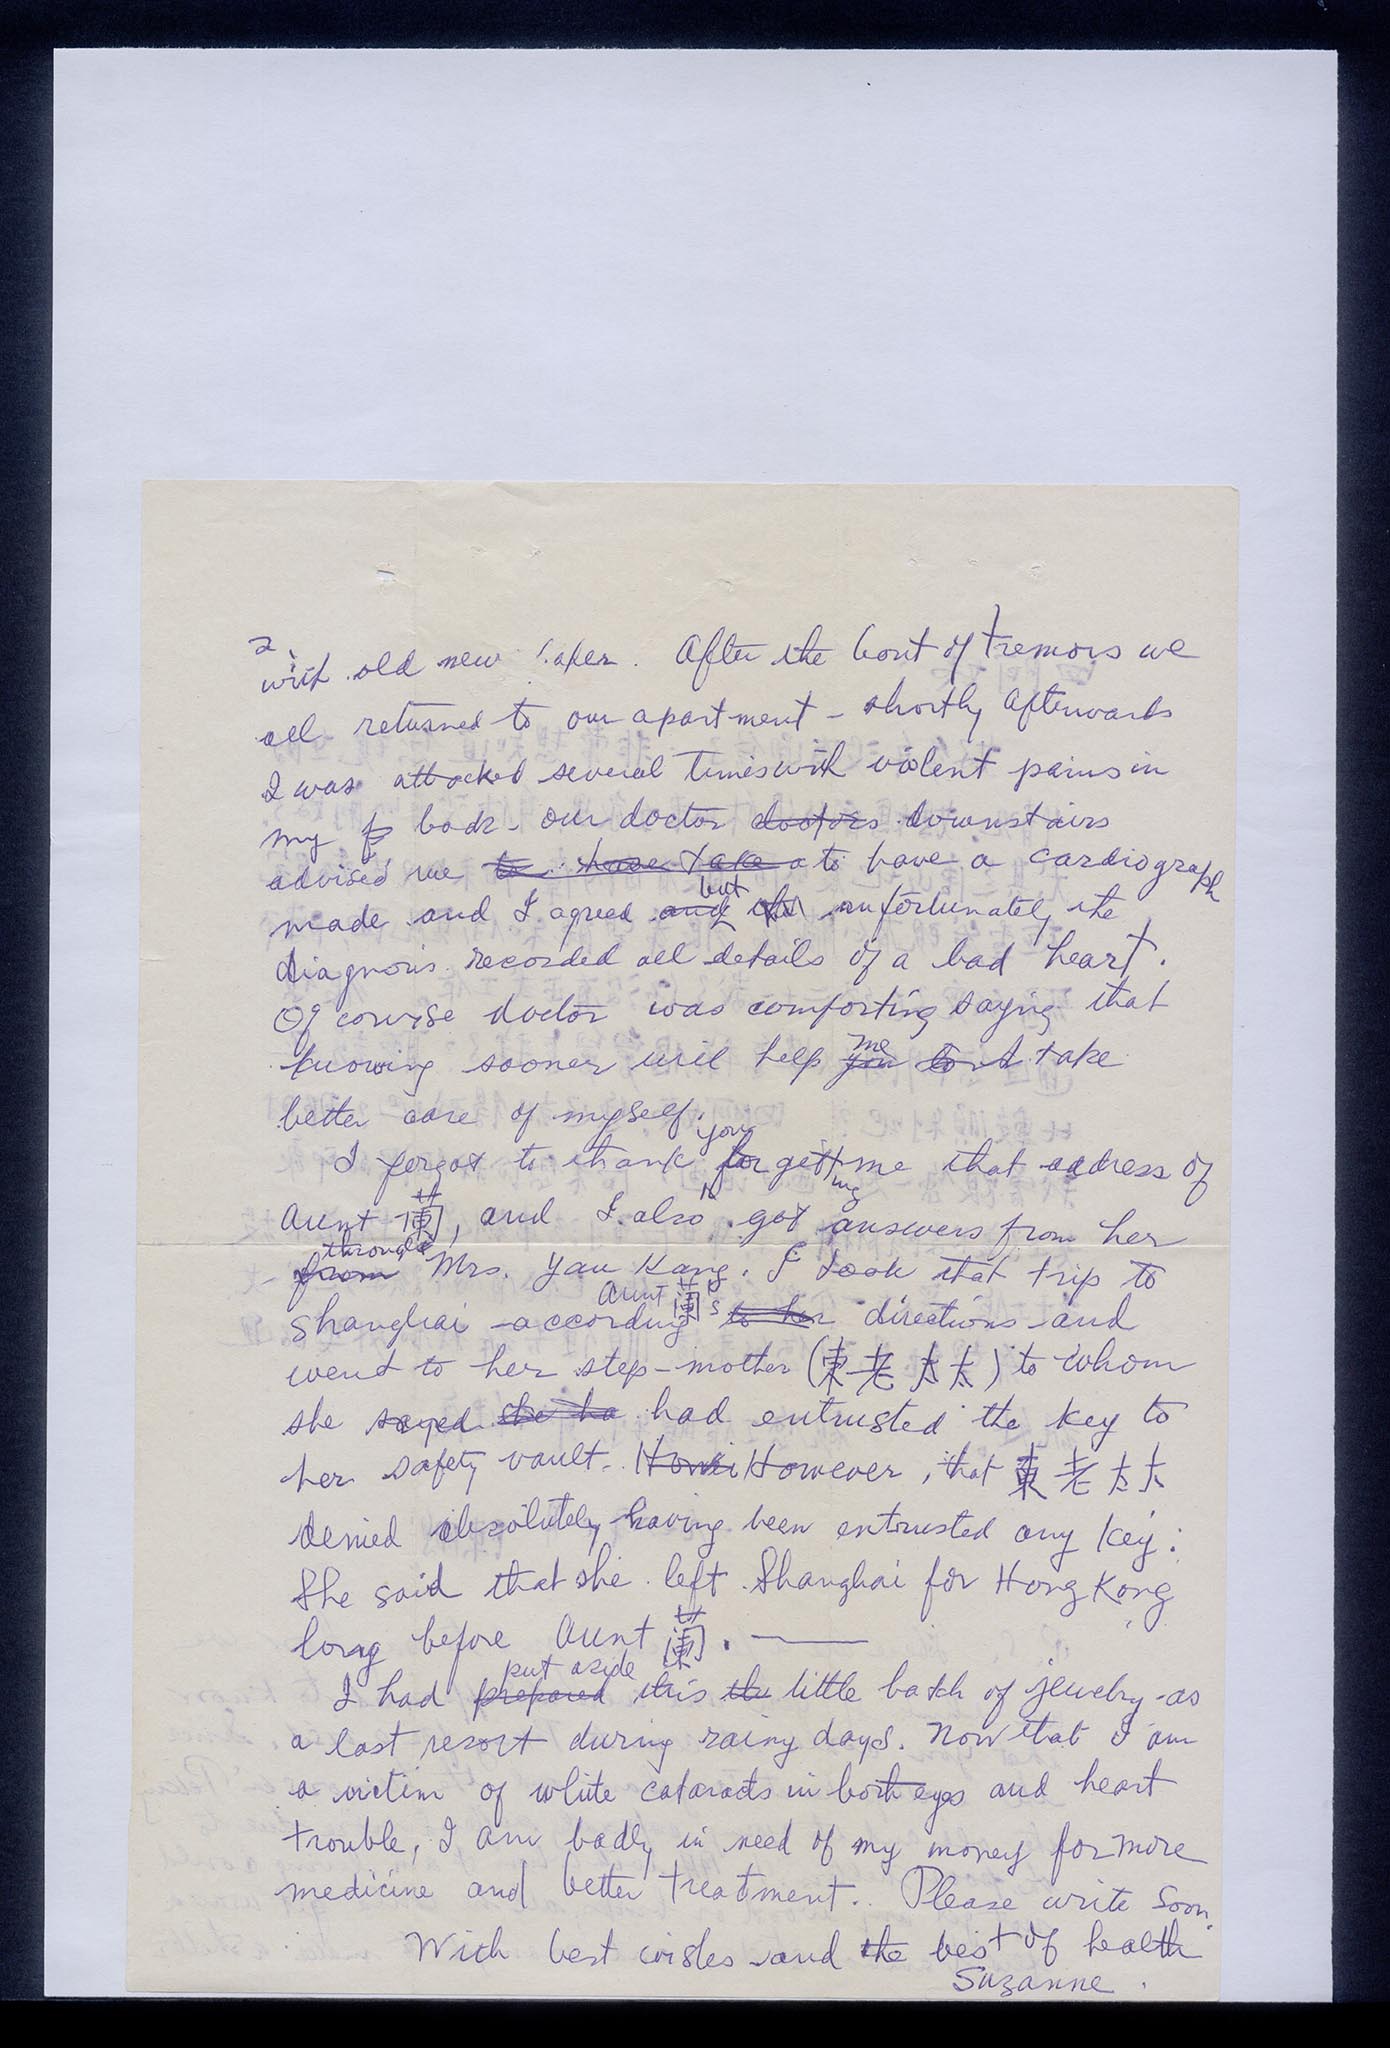 2
with old new paper. After the bout of tremors we
all returned to our apartment – shortly afterwards
I was attacked several times with violent pains in
my back – our doctor doctors downstairs
advised me to have take a to have a cardiograph
but
made and I agreed and unfortunately the
diagnosis recorded all details of a bad heart.
Of course doctor was comforting saying that
me
knowing sooner will help you to take
better care of myself.
you
I forgot to thank for getting me that address of
Aunt 蘭, and I also got answers from her
through
from Mrs. Yau Kang. I took that trip to
Aunt 蘭's
Shanghai – according to her directions and
went to her step-mother (東老太太) to whom
she sayed she ha had entrusted the key to
her safety vault. However, that 東老太太
denied absolutely having been entrusted any key.
She said that she left Shanghai for Hong Kong
long before Aunt 蘭. —
put aside
I had prepared this the little batch of jewelry as
a last resort during rainy days. Now that I am
a victim of white cataracts in both eyes and heart
trouble, I am badly in need of my money for more
medicine and better treatment. Please write soon.
With best wishes and the best of health
Suzanne.